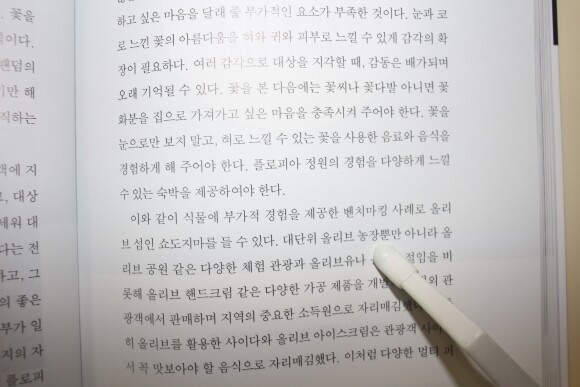 꽃을
이다.
팬덤의
기만 해
직하는
객에 지
, 대상
세워 대
다는 전
하고, 그
의 좋은
부가 일
지의 자
플로피
하고 싶은 마음을 달래 줄 부가적인 요소가 부족한 것이다. 눈과 코
로 느낀 꽃의 아름다움을 혀와 귀와 피부로 느낄 수 있게 감각의 확
장이 필요하다. 여러 감각으로 대상을 지각할 때, 감동은 배가되며
오래 기억될 수 있다. 꽃을 본 다음에는 꽃씨나 꽃다발 아니면 꽃
화분을 집으로 가져가고 싶은 마음을 충족시켜 주어야 한다. 꽃을
눈으로만 보지 말고, 혀로 느낄 수 있는 꽃을 사용한 음료와 음식을
경험하게 해 주어야 한다. 플로피아 정원의 경험을 다양하게 느낄
수 있는 숙박을 제공하여야 한다.
이와 같이 식물에 부가적 경험을 제공한 벤치마킹 사례로 올리
브 섬인 쇼도지마를 들 수 있다. 대단위 올리브 농장뿐만 아니라 올
리브 공원 같은 다양한 체험 관광과 올리브유나 절임을 비
롯해 올리브 핸드크림 같은 다양한 가공 제품을 개발 관
광객에서 판매하며 지역의 중요한 소득원으로 자리매김했
히 올리브를 활용한 사이다와 올리브 아이스크림은 관광객 사이
서 꼭 맛보아야 할 음식으로 자리매김했다. 이처럼 다양한 멀티 퍼